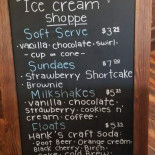 Ice cream
Shoppe
Soft Serve $3.25
• vanilla • chocolate • swirl •
- cup or cone -
Sundaes $7.99
• Strawberry Shortcake
• Brownie
Milkshakes $5
• vanilla • chocolate •
strawberry • cookies n'
cream • coffee •
Floats
Hank's craft Soda
• Root Beer • Orange cream
• Black Cherry • Birch
Cold Brew